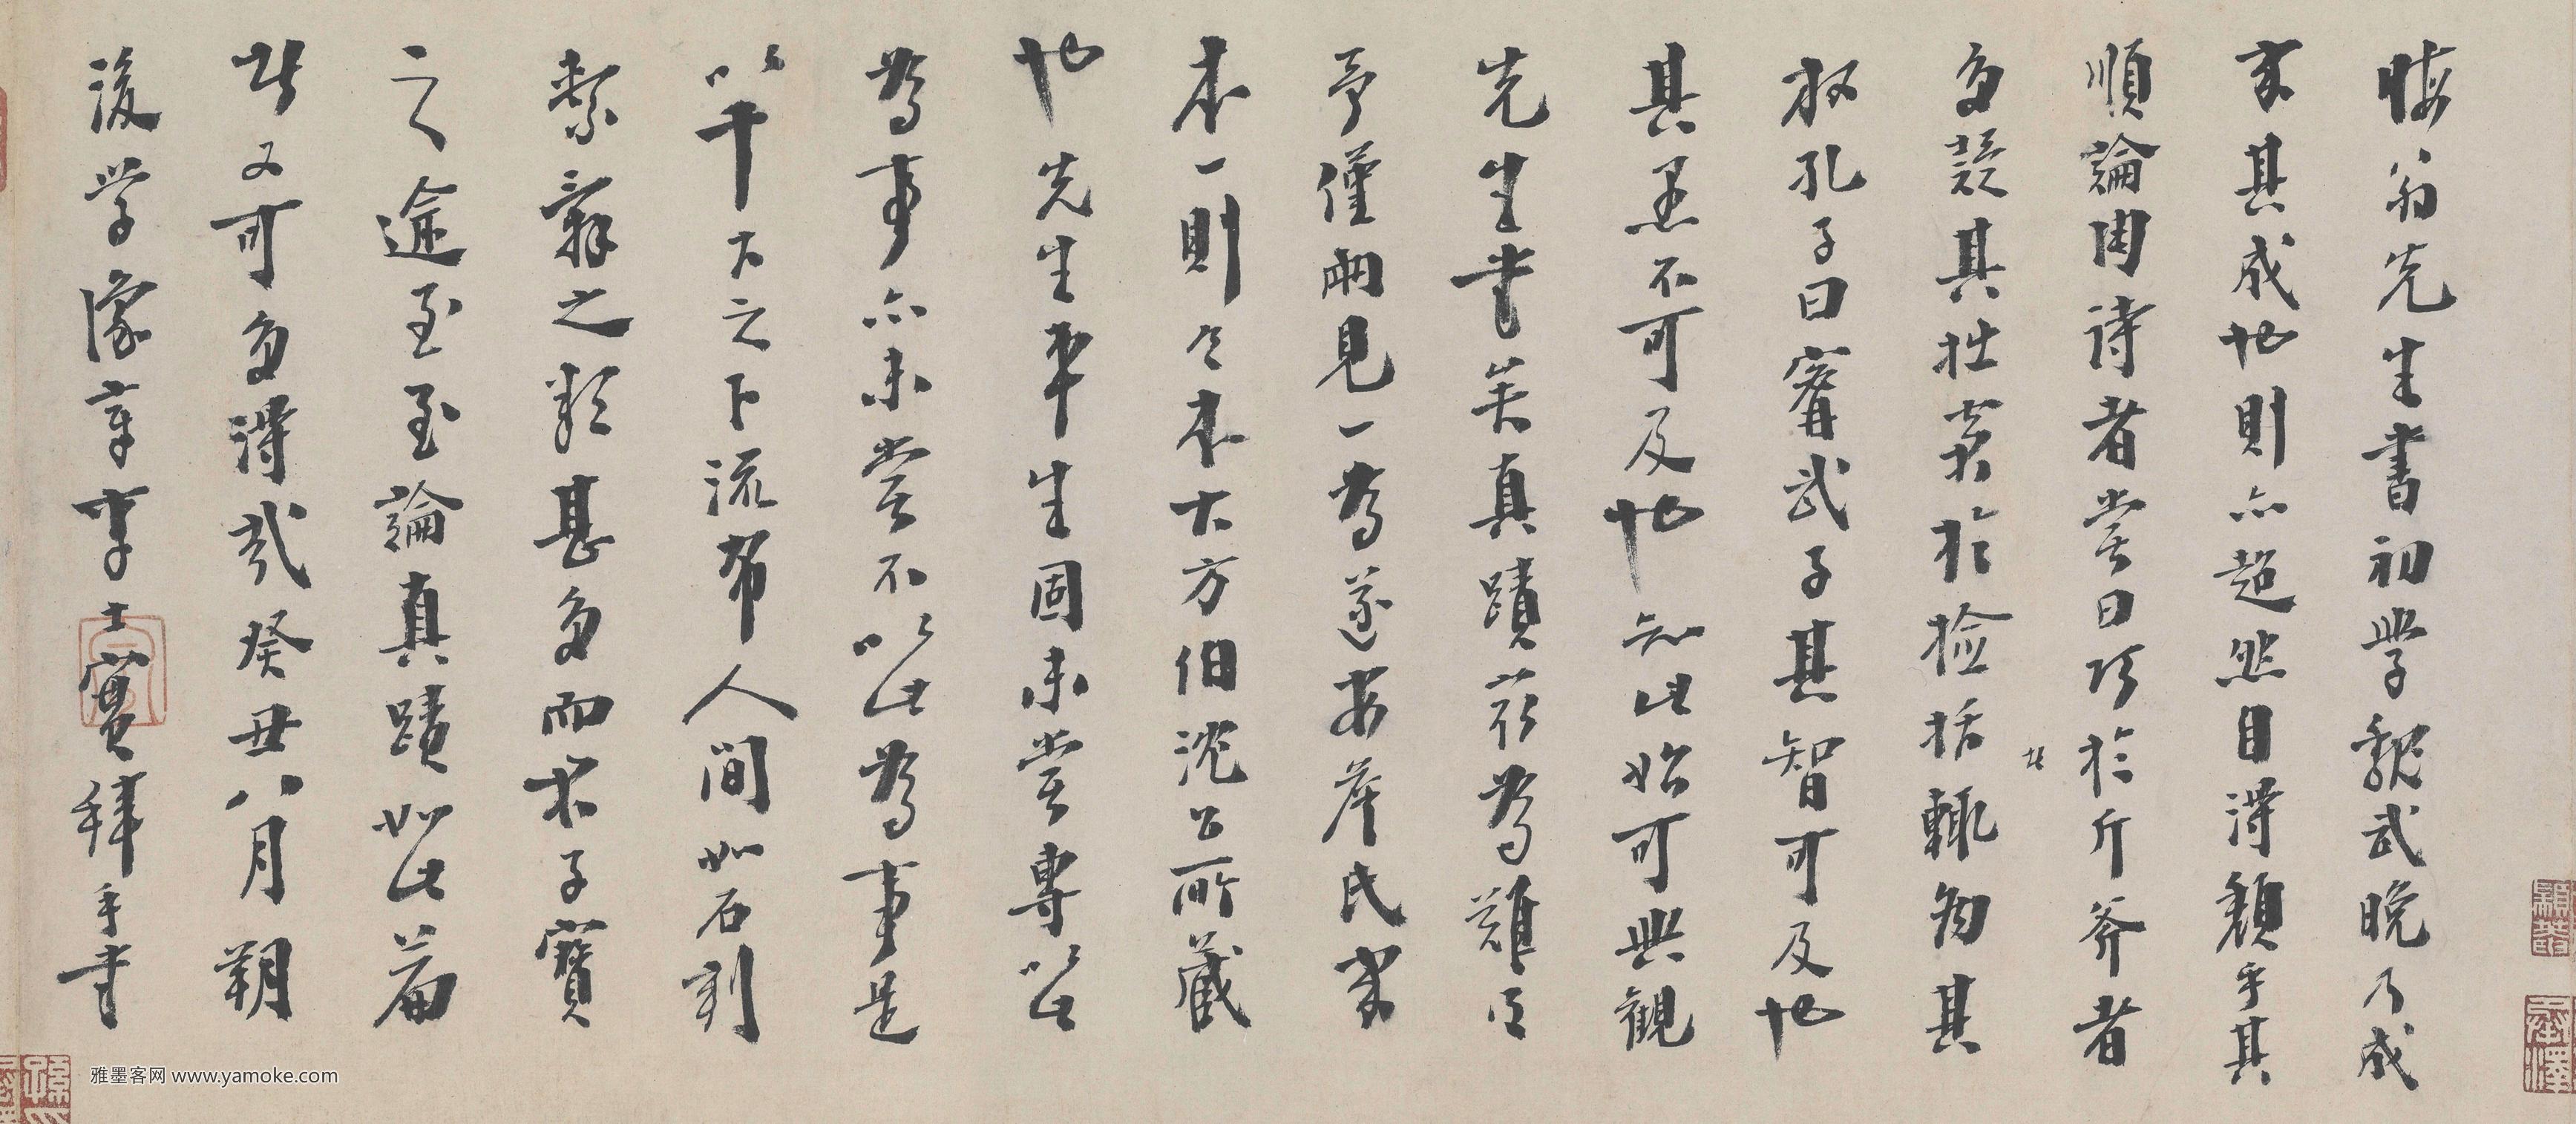 晦翁先生書初學魏武晚乃成
家其成也則亦超然自得類乎其
順論陶诗者嘗曰巧於斤斧者
多疑其拙窘於
撿括輒病其
放孔子曰寗武子其智可及也
其愚不可及也知此始可與觀
先生書矣真蹟萩為難得
予僅兩見一為遂安
氏家
本一則今本大方伯沈公所藏
也先生平生固未嘗專以此
為事亦未嘗不以此為事是
以筆下之下流布人間如石刻
繫辭之類甚多而求子寶
之途至至論真蹟如此篇
者又可多得哉癸丑八月朔
後學豫章李士實拜手書
雅墨客网 www.yamoke.com